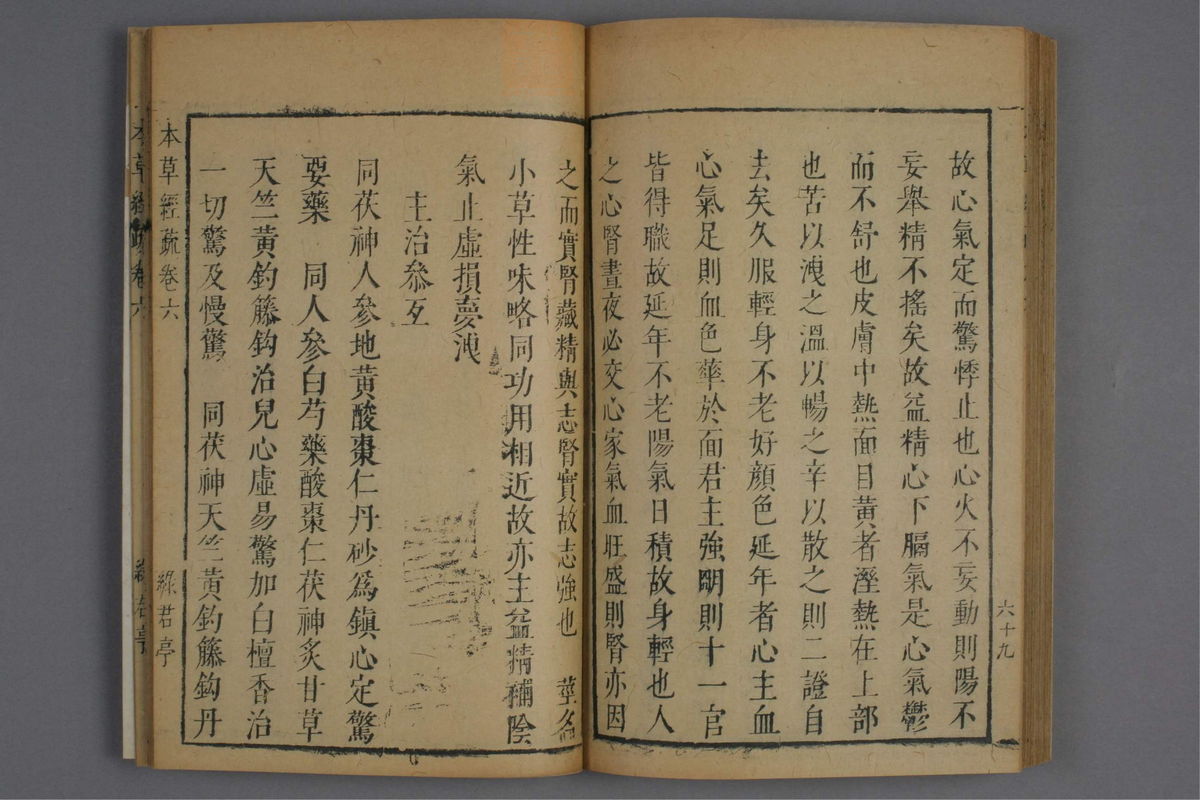 故心氣定而驚悸止也心火不妄動則陽不
妄舉精不搖矣故益精心下膈氣是心氣鬱
而不舒也皮膚中熱面目黃者溼熱在上部
也苦以洩之溫以暢之辛以散之則二證自
去矣久服輕身不老好顔色延年者心主血
心氣足則血色華於面君主強明則十一官
皆得職故延年不老陽氣日積故身輕也人
之心腎晝夜必交心家氣血旺盛則腎亦因
六十九
之而實腎藏精與志腎實故志強也 莖名
小草性味略同功用相近故亦主益精補陰
氣止虛損夢洩
主治參互
同茯神人參地黃酸棗仁丹砂為鎮心定驚
要藥 同人參白芍藥酸棗仁茯神炙甘草
天竺黃釣籐鈎治兒心虛易驚加白檀香治
一切驚及慢驚 同茯神天竺黃釣籐鈎丹
本草經疏卷六
綠君亭
本草經疏卷六
綠君亭